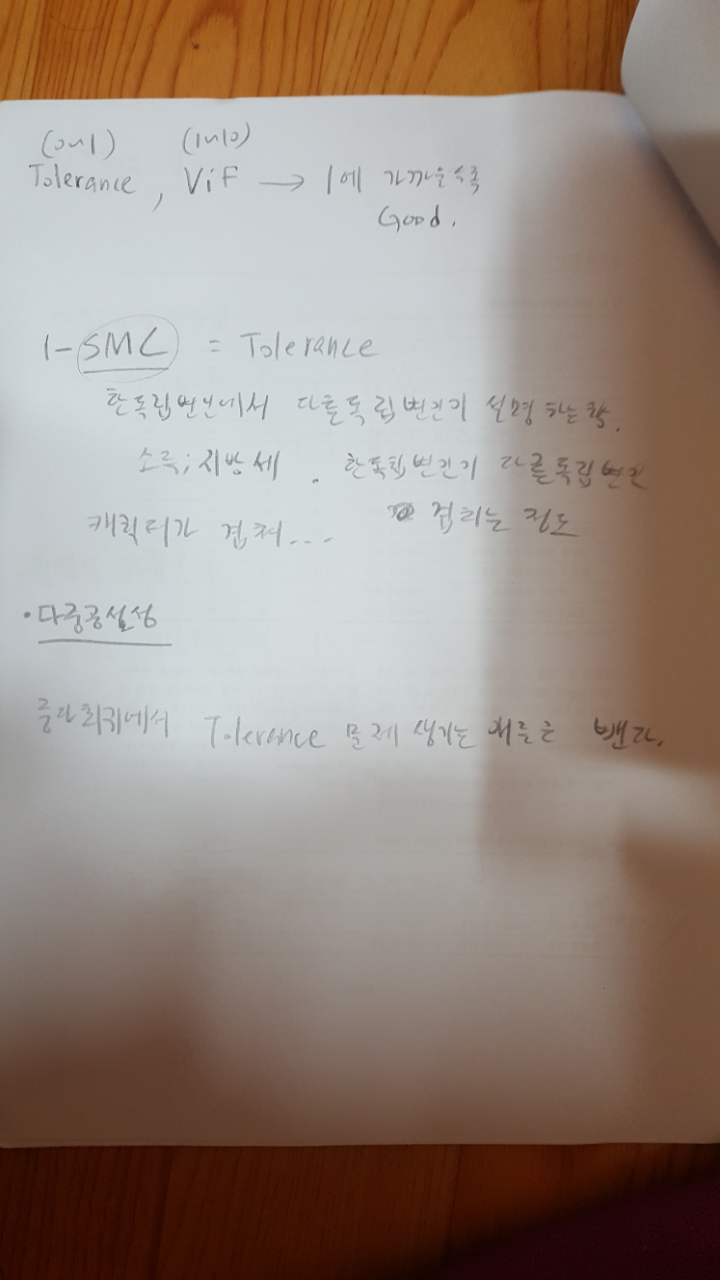 (0~1) (1~10)
Tolerance, ViF → 1에 가까울수록
Good.
1-SMC = Tolerance
한독립변인에서 다른독립변인기 설명하는
소득; 지방세. 한독립변인기 다른독립변인
캐릭터가 겹쳐... 겹치는 정도
• 다중공실성
중다회귀에서 Tolerance 문제 생기는 뺀다.